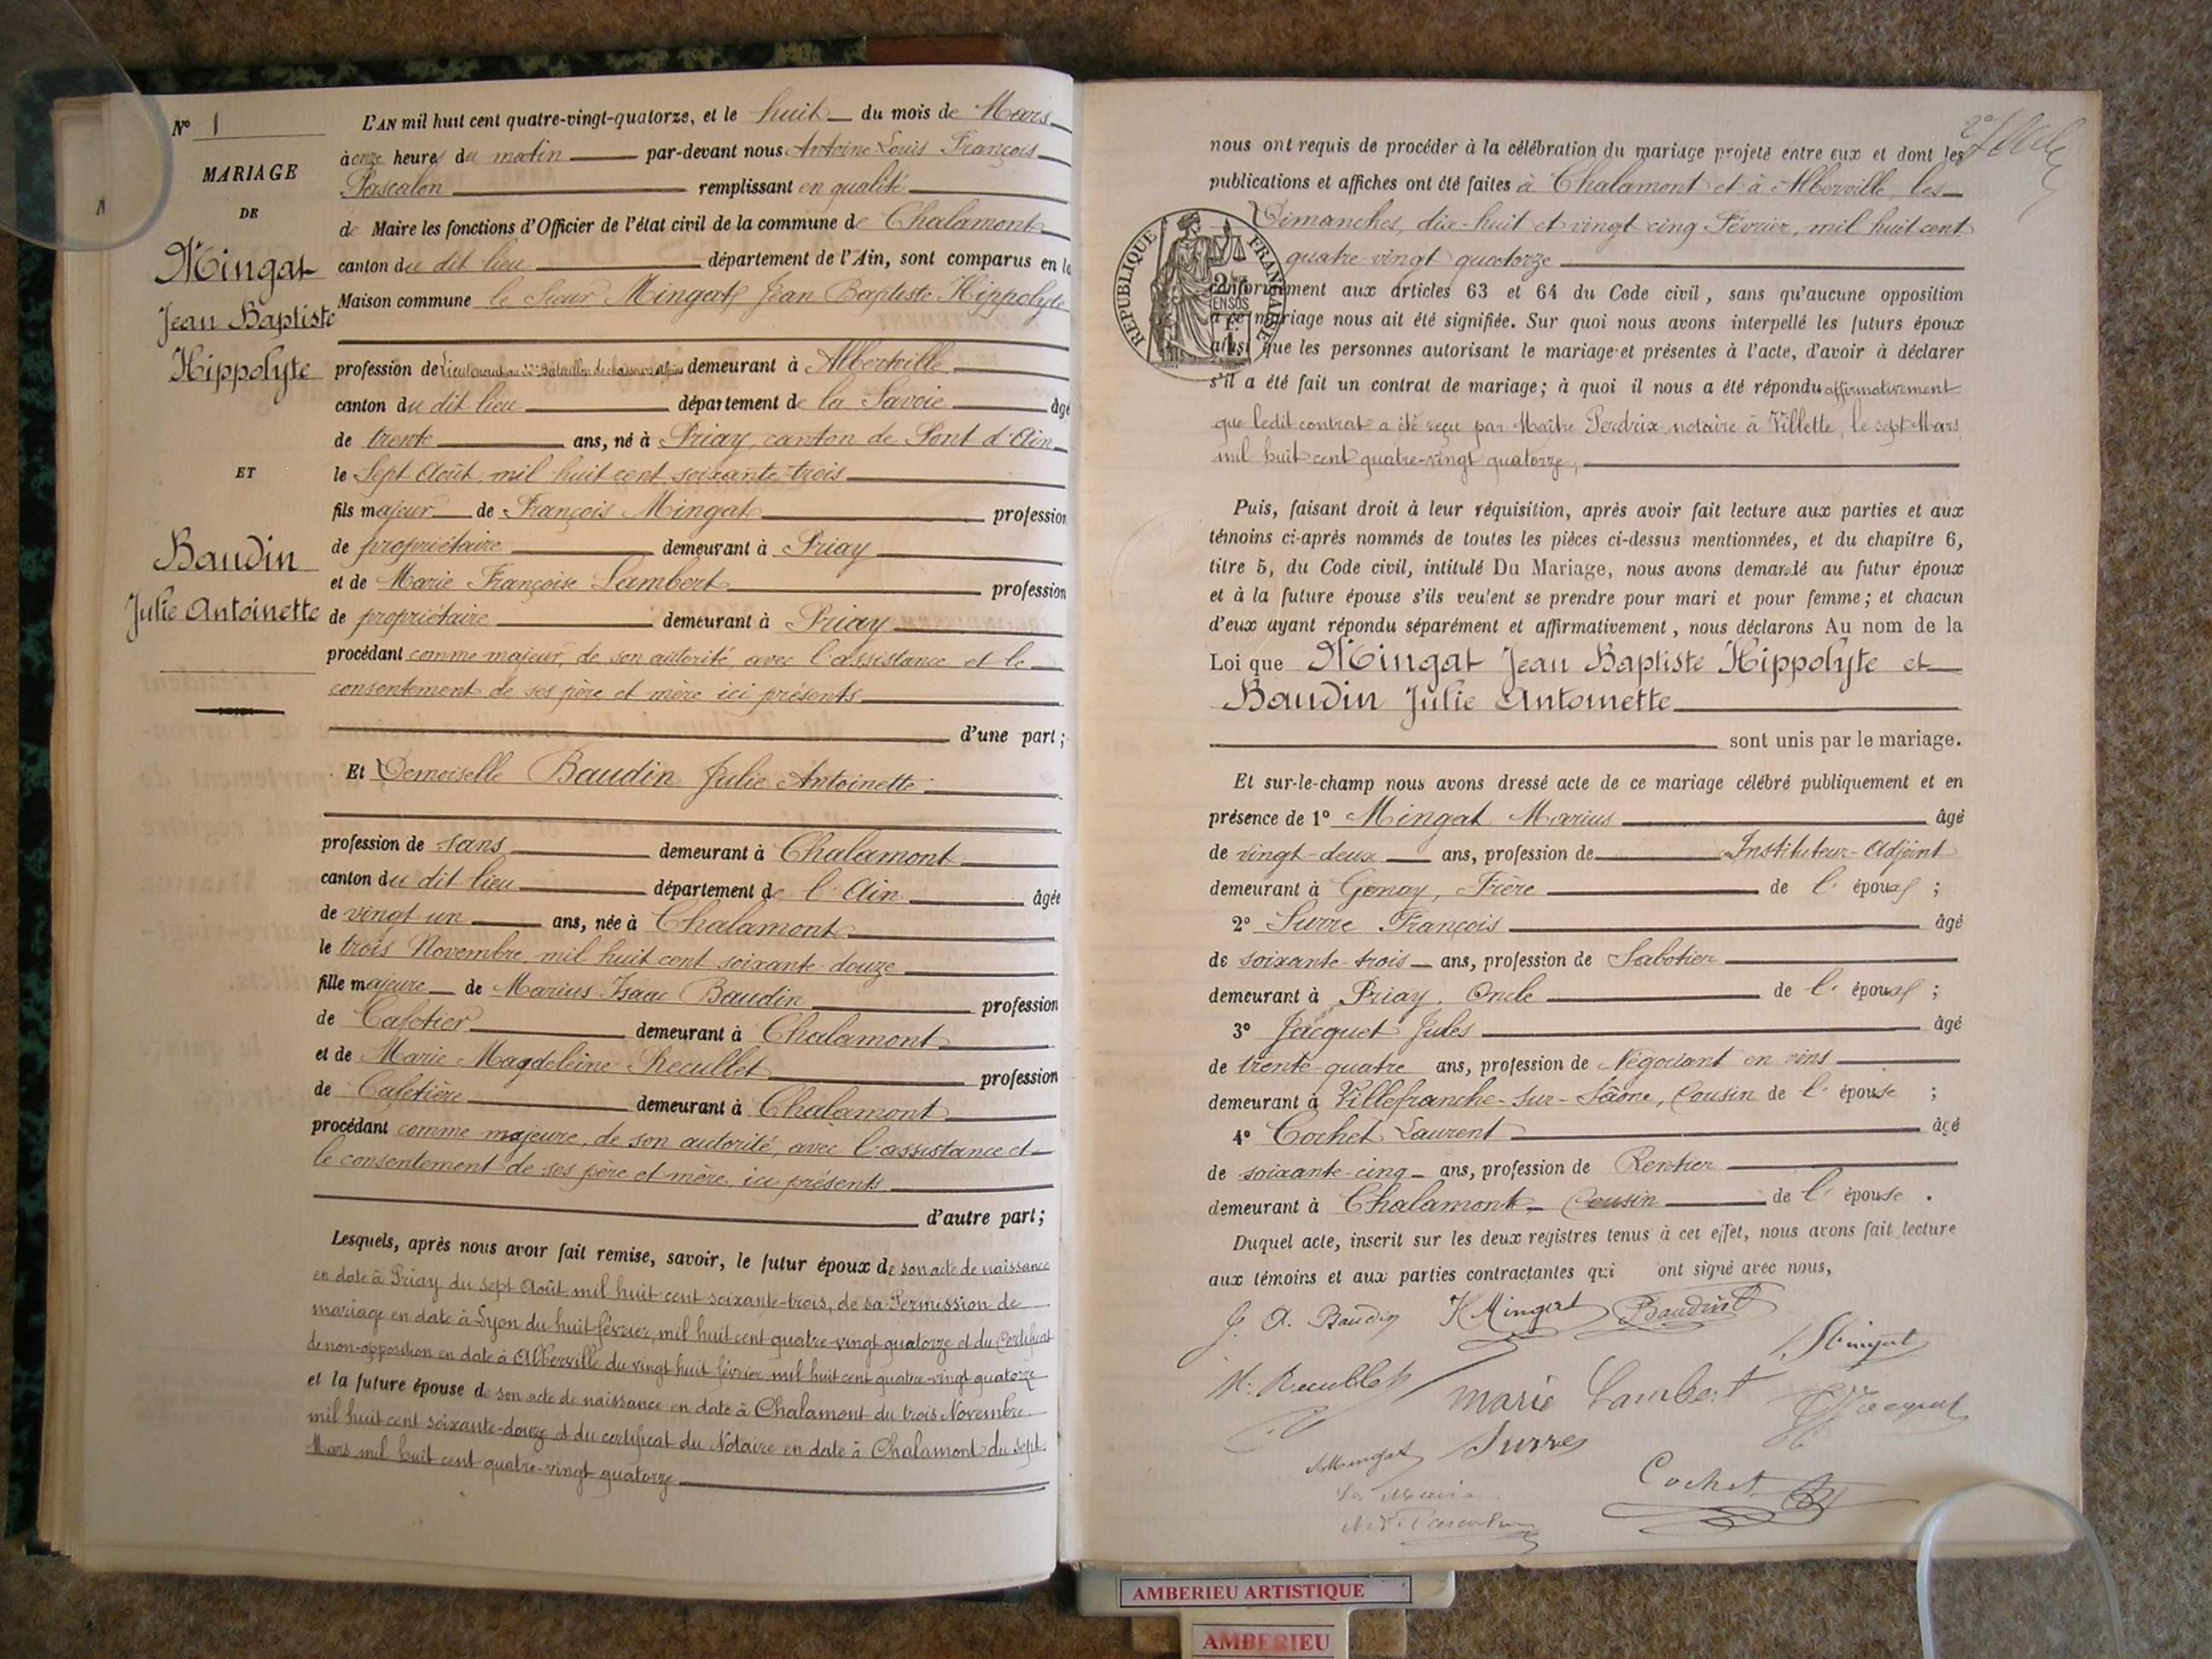 N° 1
MARIAGE
DE
Mingat
Jean Baptiste
Hippolyte
ET
Baudin
Julie Antoinette
L'AN mil huit cent quatre-vingt-quatorze, et le huit du mois de Mars
à onze heures du matin par-devant nous Antoine Louis François
Pascalon remplissant en qualité
de Maire les fonctions d'Officier de l'état civil de la commune de Chalamont
canton du dit lieu département de l'Ain, sont comparus en la
Maison commune le Sieur Mingat Jean Baptiste Hippolyte
profession de Lieutenant au 22e Bataillon de chasseurs alpins demeurant à Albertville
canton du dit lieu département de la Savoie âgé
de trente ans, né à Priay, canton de Pont d'Ain
le Sept Août mil huit cent soixante-trois
fils majeur de François Mingat profession
de propriétaire demeurant à Priay
et de Marie Françoise Lambert profession
de propriétaire demeurant à Priay
procédant comme majeur, de son autorité, avec l'assistance et le
consentement de ses père et mère ici présents
d'une part;
Et Demoiselle Baudin Julie Antoinette
profession de sans demeurant à Chalamont
canton du dit lieu département de l'Ain âgée
de vingt un ans, née à Chalamont
le trois Novembre mil huit cent soixante-douze
fille majeure de Marius Isaac Baudin profession
de Cafetier demeurant à Chalamont
et de Marie Magdeleine Recullet profession
de Cafetière demeurant à Chalamont
procédant comme majeure, de son autorité, avec l'assistance et
le consentement de ses père et mère, ici présents
d'autre part;
Lesquels, après nous avoir fait remise, savoir, le futur époux de son acte de naissance
en date à Priay du sept Août mil huit cent soixante-trois, de sa Permission de
mariage en date à Lyon du huit février mil huit cent quatre-vingt quatorze et du Certificat
de non-opposition en date à Albertville du vingt huit février mil huit cent quatre-vingt quatorze
et la future épouse de son acte de naissance en date à Chalamont du trois Novembre
mil huit cent soixante-douze et du certificat du Notaire en date à Chalamont du sept
Mars mil huit cent quatre-vingt quatorze
nous ont requis de procéder à la célébration du mariage projeté entre eux et dont les
publications et affiches ont été faites à Chalamont et à Alberville, les
Dimanches, dix-huit et vingt cinq Février, mil huit cent
quatre-vingt quatorze
conformément aux articles 63 et 64 du Code civil, sans qu'aucune opposition
à ce mariage nous ait été signifiée. Sur quoi nous avons interpellé les futurs époux
ainsi que les personnes autorisant le mariage et présentes à l'acte, d'avoir à déclarer
s'il a été fait un contrat de mariage; à quoi il nous a été répondu affirmativement
que ledit contrat a été reçu par Maître Perdrix notaire à Villette, le sept Mars
mil huit cent quatre-vingt quatorze;
RÉPUBLIQUE FRANÇAISE
Puis, faisant droit à leur réquisition, après avoir fait lecture aux parties et aux
témoins ci-après nommés de toutes les pièces ci-dessus mentionnées, et du chapitre 6,
titre 5, du Code civil, intitulé Du Mariage, nous avons demandé au futur époux
et à la future épouse s'ils veulent se prendre pour mari et pour femme; et chacun
d'eux ayant répondu séparément et affirmativement, nous déclarons Au nom de la
Loi que Mingat Jean Baptiste Hippolyte et
Baudin Julie Antoinette
sont unis par le mariage.
Et sur-le-champ nous avons dressé acte de ce mariage célébré publiquement et en
présence de 1° Mingat Marius âgé
de vingt-deux ans, profession de Instituteur-Adjoint
demeurant à Genay, Frère de l'époux;
2° Surre François âgé
de soixante-trois ans, profession de Sabotier
demeurant à Priay, Oncle de l'époux;
3° Jacquet Jules âgé
de trente-quatre ans, profession de Négociant en vins
demeurant à Villefranche-sur-Saône, Cousin de l'épouse;
4° Cochet Laurent âgé
de soixante-cinq ans, profession de Rentier
demeurant à Chalamont, Cousin de l'épouse.
Duquel acte, inscrit sur les deux registres tenus à cet effet, nous avons fait lecture
aux témoins et aux parties contractantes qui ont signé avec nous,
J. A. Baudin H Mingat Baudin
Mingat
M. Recullet Marie Lambert Jacquet
Mingat Surre
Cochet
Le Maire
Pascalon
AMBERIEU ARTISTIQUE
AMBERIEU